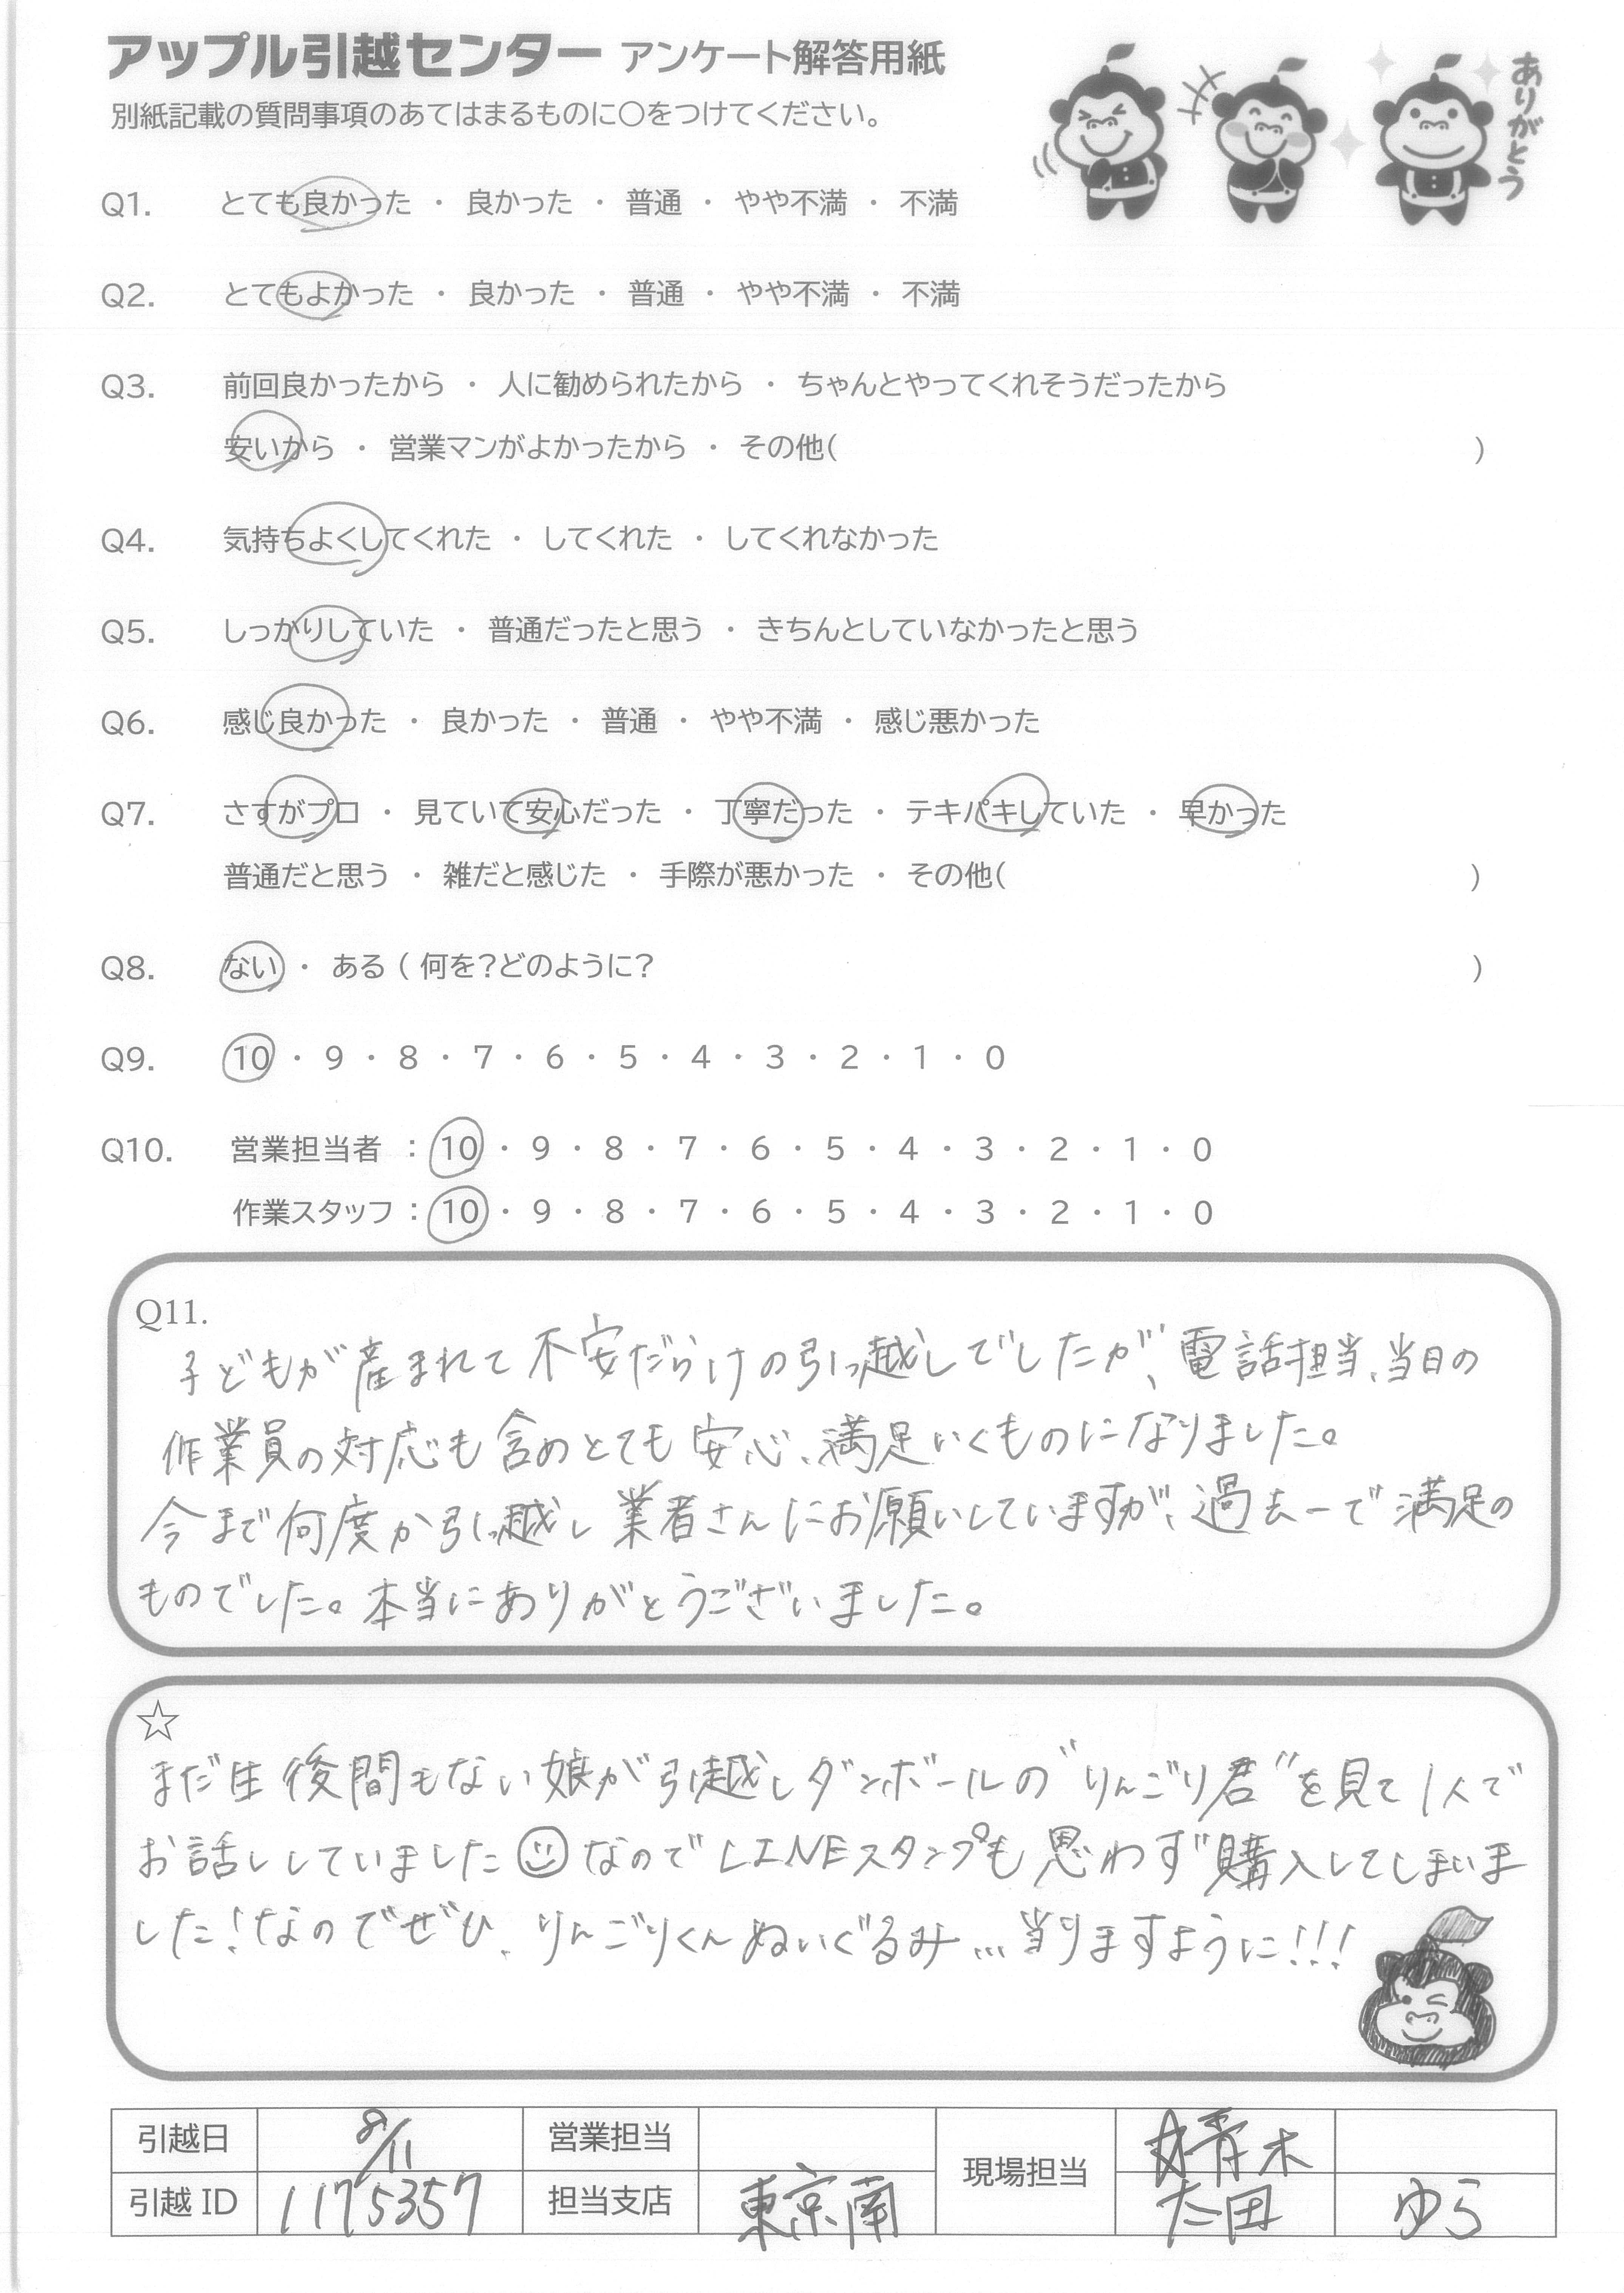 アップル引越センター アンケート解答用紙
別紙記載の質問事項のあてはまるものに〇をつけてください。
ありがとう
Q1. とても良かった ・ 良かった ・ 普通 ・ やや不満 ・ 不満
Q2. とてもよかった ・ 良かった ・ 普通 ・ やや不満 ・ 不満
Q3. 前回良かったから ・ 人に勧められたから ・ ちゃんとやってくれそうだったから
安いから ・ 営業マンがよかったから ・ その他( )
Q4. 気持ちよくしてくれた ・ してくれた ・ してくれなかった
Q5. しっかりしていた ・ 普通だったと思う ・ きちんとしていなかったと思う
Q6. 感じ良かった ・ 良かった ・ 普通 ・ やや不満 ・ 感じ悪かった
Q7. さすがプロ ・ 見ていて安心だった ・ 丁寧だった ・ テキパキしていた ・ 早かった
普通だと思う ・ 雑だと感じた ・ 手際が悪かった ・ その他( )
Q8. ない ・ ある ( 何を?どのように? )
Q9. 10 ・ 9 ・ 8 ・ 7 ・ 6 ・ 5 ・ 4 ・ 3 ・ 2 ・ 1 ・ 0
Q10. 営業担当者 : 10 ・ 9 ・ 8 ・ 7 ・ 6 ・ 5 ・ 4 ・ 3 ・ 2 ・ 1 ・ 0
作業スタッフ : 10 ・ 9 ・ 8 ・ 7 ・ 6 ・ 5 ・ 4 ・ 3 ・ 2 ・ 1 ・ 0
Q11.
子どもが産まれて不安だらけの引っ越しでしたが、電話担当、当日の
作業員の対応も含めとても安心、満足いくものになりました。
今まで何度か引っ越し業者さんにお願いしていますが、過去一で満足の
ものでした。本当にありがとうございました。
☆
まだ生後間もない娘が引越しダンボールの"りんごり君"を見て1人で
お話ししていました☺なのでLINEスタンプも思わず購入してしまいま
した!なのでぜひ、りんごりくんぬいぐるみ…当りますように!!!
引越日 8/11 営業担当 現場担当 青木
引越ID 1175357 担当支店 東京南 太田 ゆら